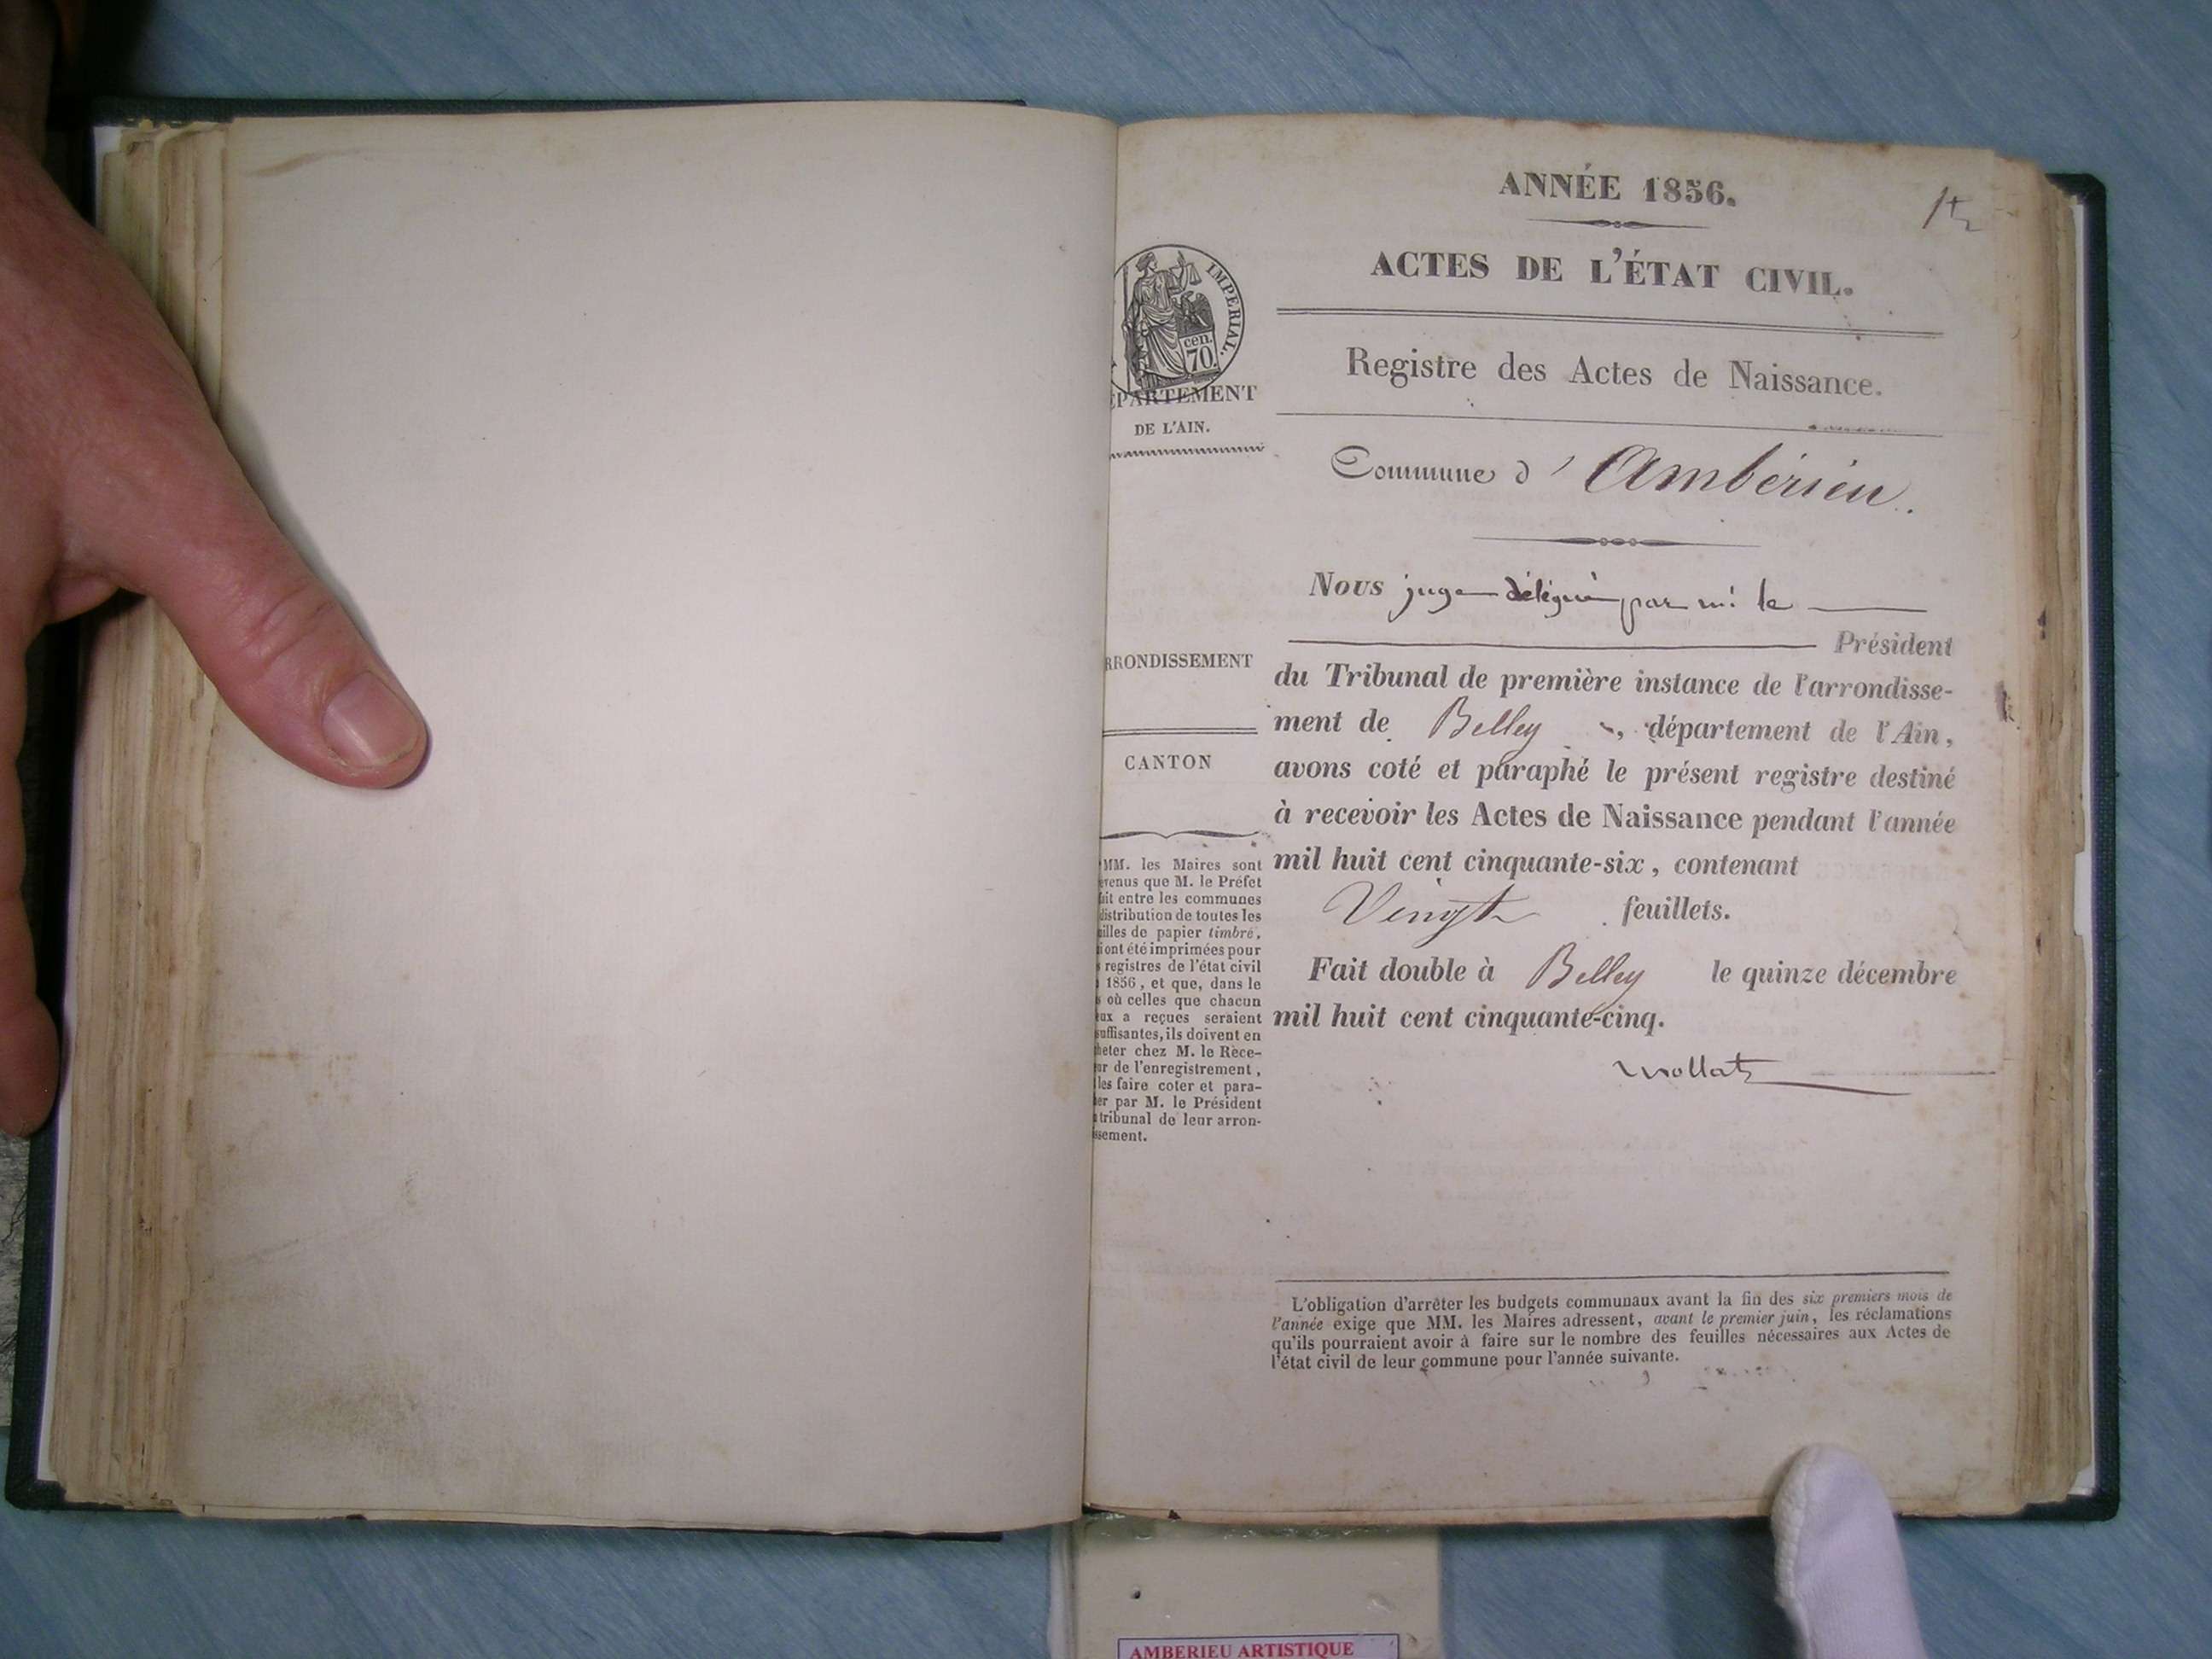 ANNÉE 1856.
ACTES DE L'ÉTAT CIVIL.
IMPERIAL.
cen.
70
ÉPARTEMENT
DE L'AIN.
Registre des Actes de Naissance.
Commune d'Ambérieu.
Nous juge délégué par mr le
Président
RRONDISSEMENT
du Tribunal de première instance de l'arrondisse-
ment de Belley, département de l'Ain,
CANTON
avons coté et paraphé le présent registre destiné
à recevoir les Actes de Naissance pendant l'année
mil huit cent cinquante-six, contenant
Vingt feuillets.
Fait double à Belley le quinze décembre
mil huit cent cinquante-cinq.
Mollat
MM. les Maires sont
venus que M. le Préfet
ait entre les communes
distribution de toutes les
uilles de papier timbré,
i ont été imprimées pour
s registres de l'état civil
1856, et que, dans le
s où celles que chacun
eux a reçues seraient
suffisantes, ils doivent en
heter chez M. le Rece-
ur de l'enregistrement,
les faire coter et para-
er par M. le Président
tribunal de leur arron-
ssement.
L'obligation d'arrêter les budgets communaux avant la fin des six premiers mois de
l'année exige que MM. les Maires adressent, avant le premier juin, les réclamations
qu'ils pourraient avoir à faire sur le nombre des feuilles nécessaires aux Actes de
l'état civil de leur commune pour l'année suivante.
AMBERIEU ARTISTIQUE